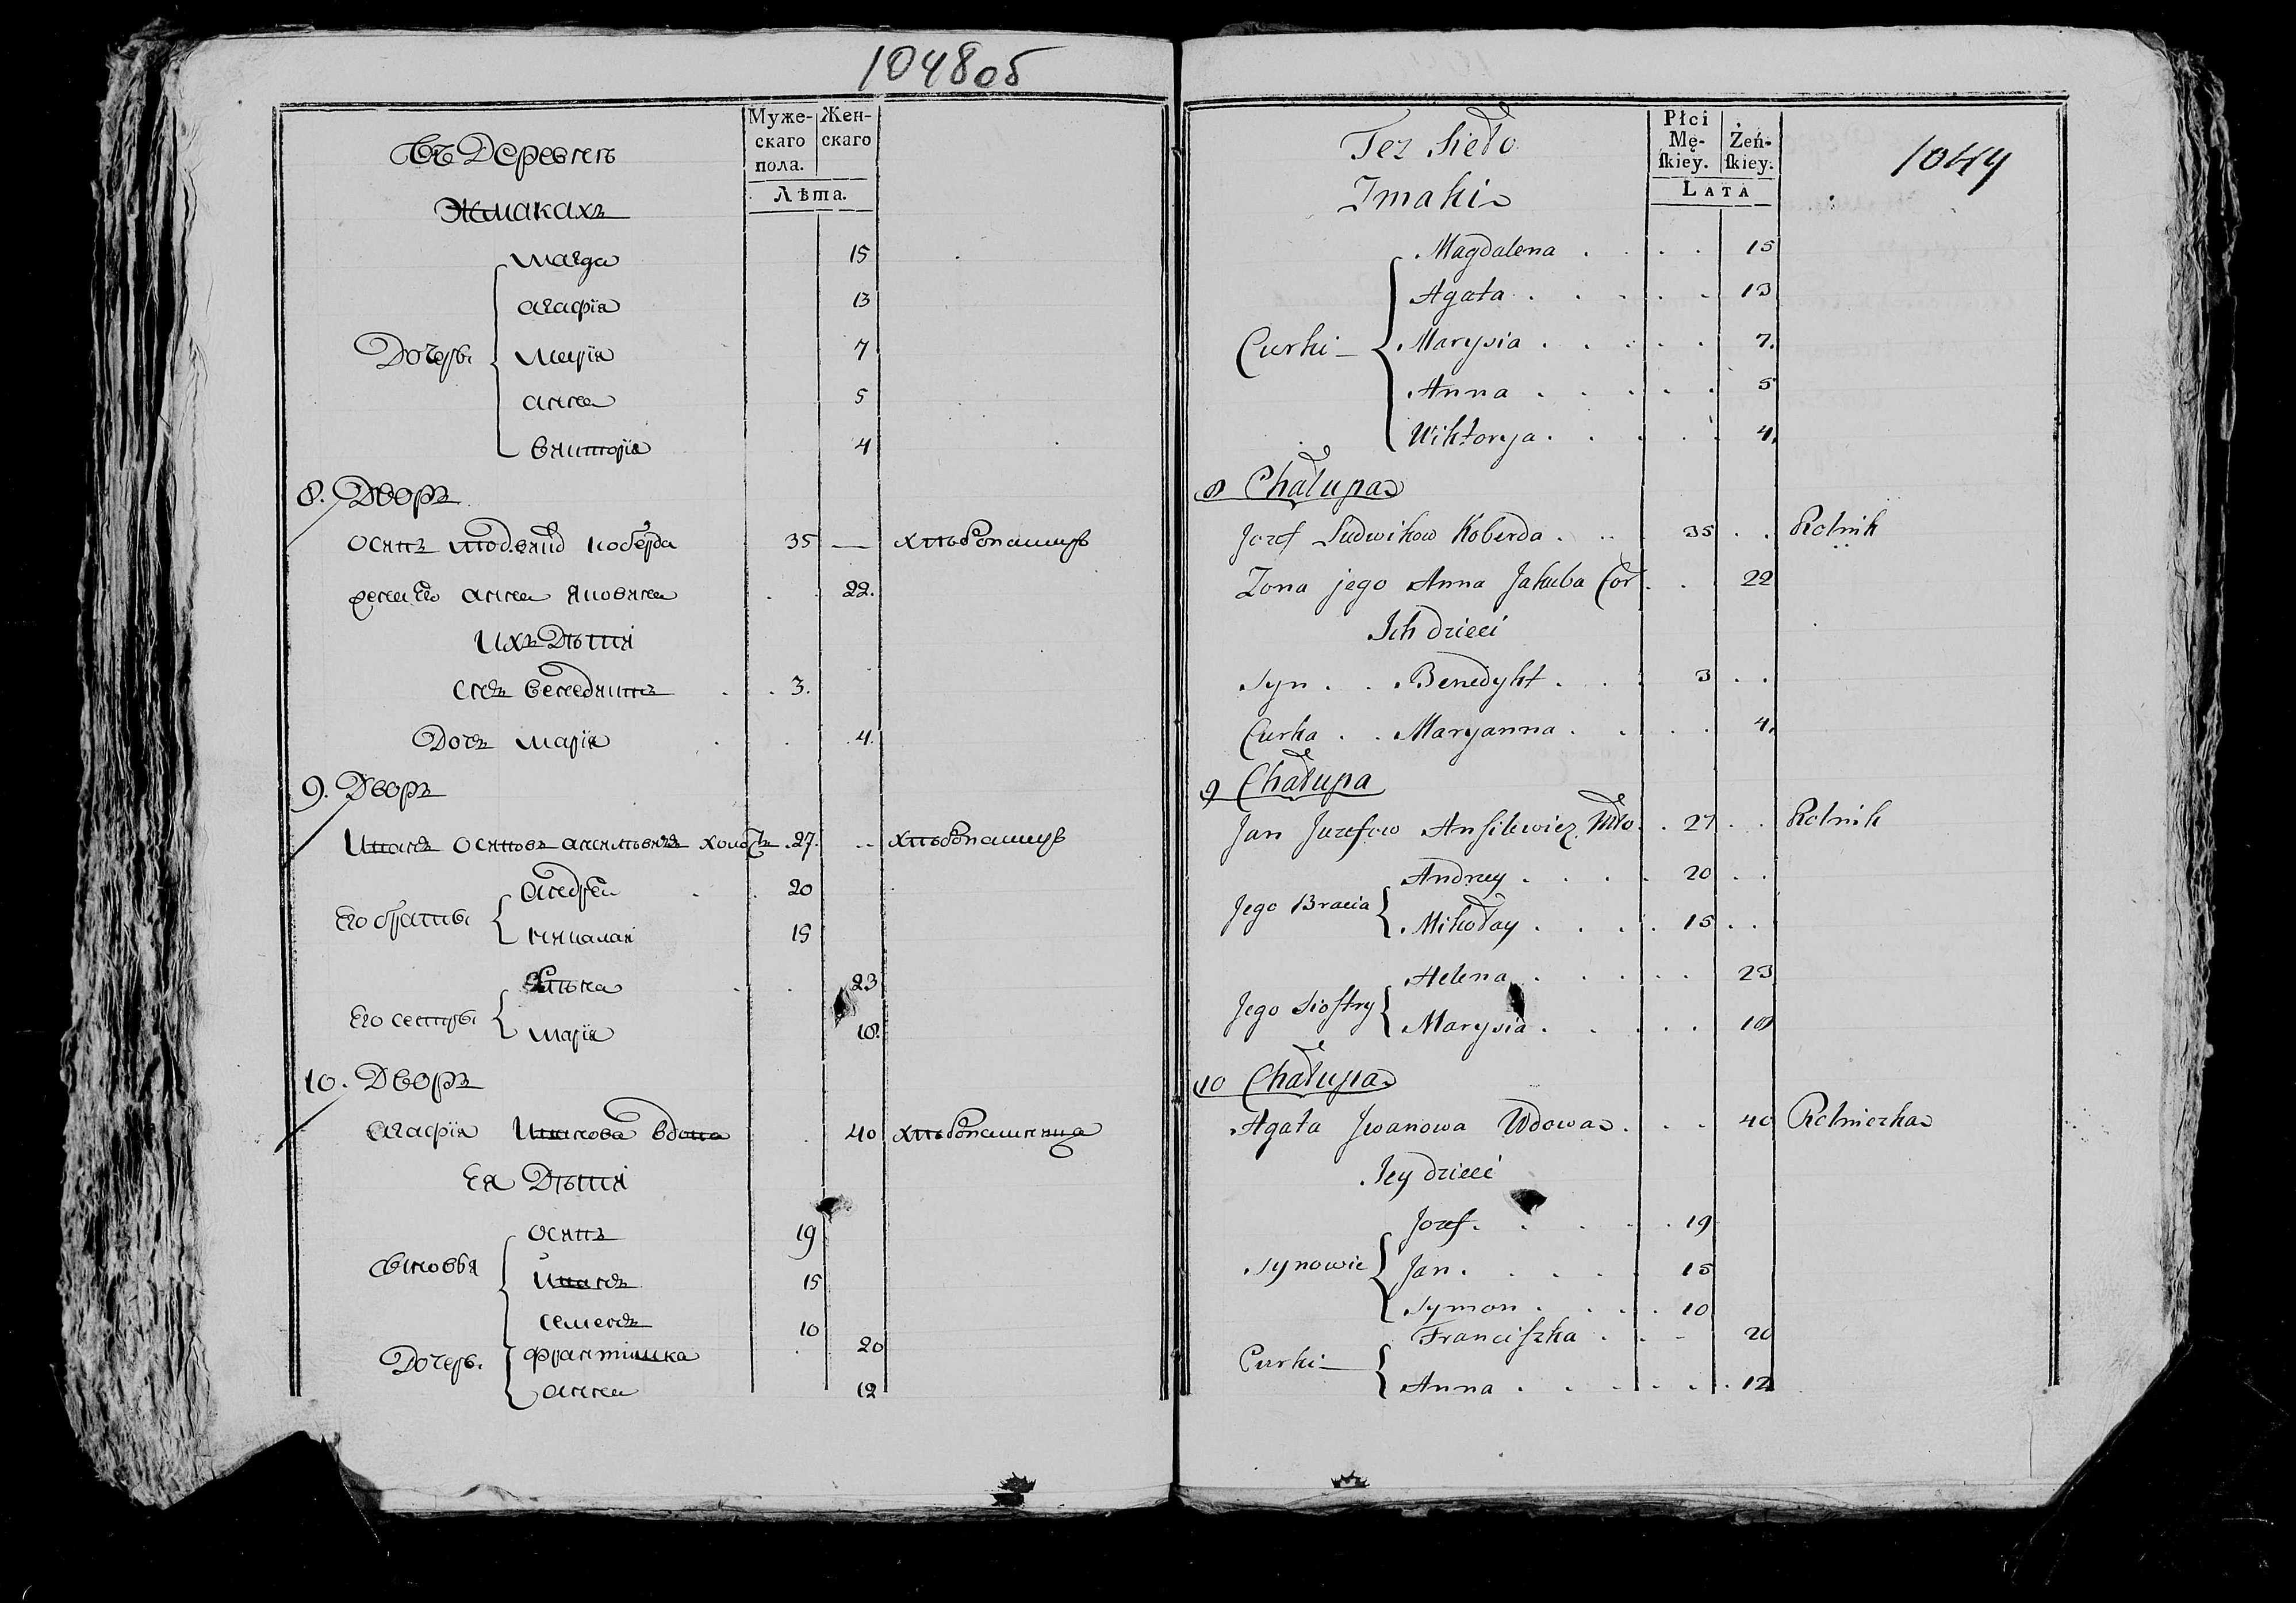 1048об
Въ Деревнѣ
Муже-
скаго
пола.
Жен-
скаго
Лѣта.
Жмакахъ
Магда 15
Агафія 13
Дочеры Марія 7
Анна 5
Викторія 4
8. Дворъ
Осипъ Людвик Коберда 35 — хлѣбопашец
жена его Анна Яковлева 22.
Ихъ Дѣти
Снъ Бенедиктъ 3.
Дочъ Марія 4.
9. Дворъ
Иванъ Осиповъ холос 27. хлѣбопашец
Андрей 20
Его братьи
Николай 15
Елена 23
Его сестры
Марія 10.
10. Дворъ
Агафія Иванова вдова 40 хлѣбопашица
Ея Дѣти
Осипъ 19
Сыновья Иванъ 15
Семенъ 10
Дочеры Франтишка 20
Анна 12
Tez Sieło
Płci
Mę-
ſkiey.
Żeń-
ſkiey.
LATA
1049
Zmaki
Magdalena . . . . 15
Agata . . . . . 13
Curki — Marysia . . . . . 7.
Anna . . . . . 5
Wiktorya . . . . . 4.
8 Chałupa
Jozef Ludwikow Koberda . . . 35 . . Rolnik
Zona jego Anna Jakuba Cor . . 22
Jch dzieci
Syn . . Benedykt . . . 3 . .
Curka . . Maryanna . . . . 4.
9 Chałupa
Jan Jozefow Ansilewicz Mło . 27 . . Rolnik
Andrzey . . . . 20 . .
Jego Bracia
Mikołay . . . . 15 . .
Helena . . . . . 23
Jego Sioſtry
Marysia . . . . . 10
10 Chałupa
Agata Jwanowa Wdowa . . . 40 Rolniczka
Jey dzieci
Jozef . . . . 19
Synowie Jan . . . . . 15
Symon . . . . 10
Franciſzka . . . 20
Curki —
Anna . . . . . . 12